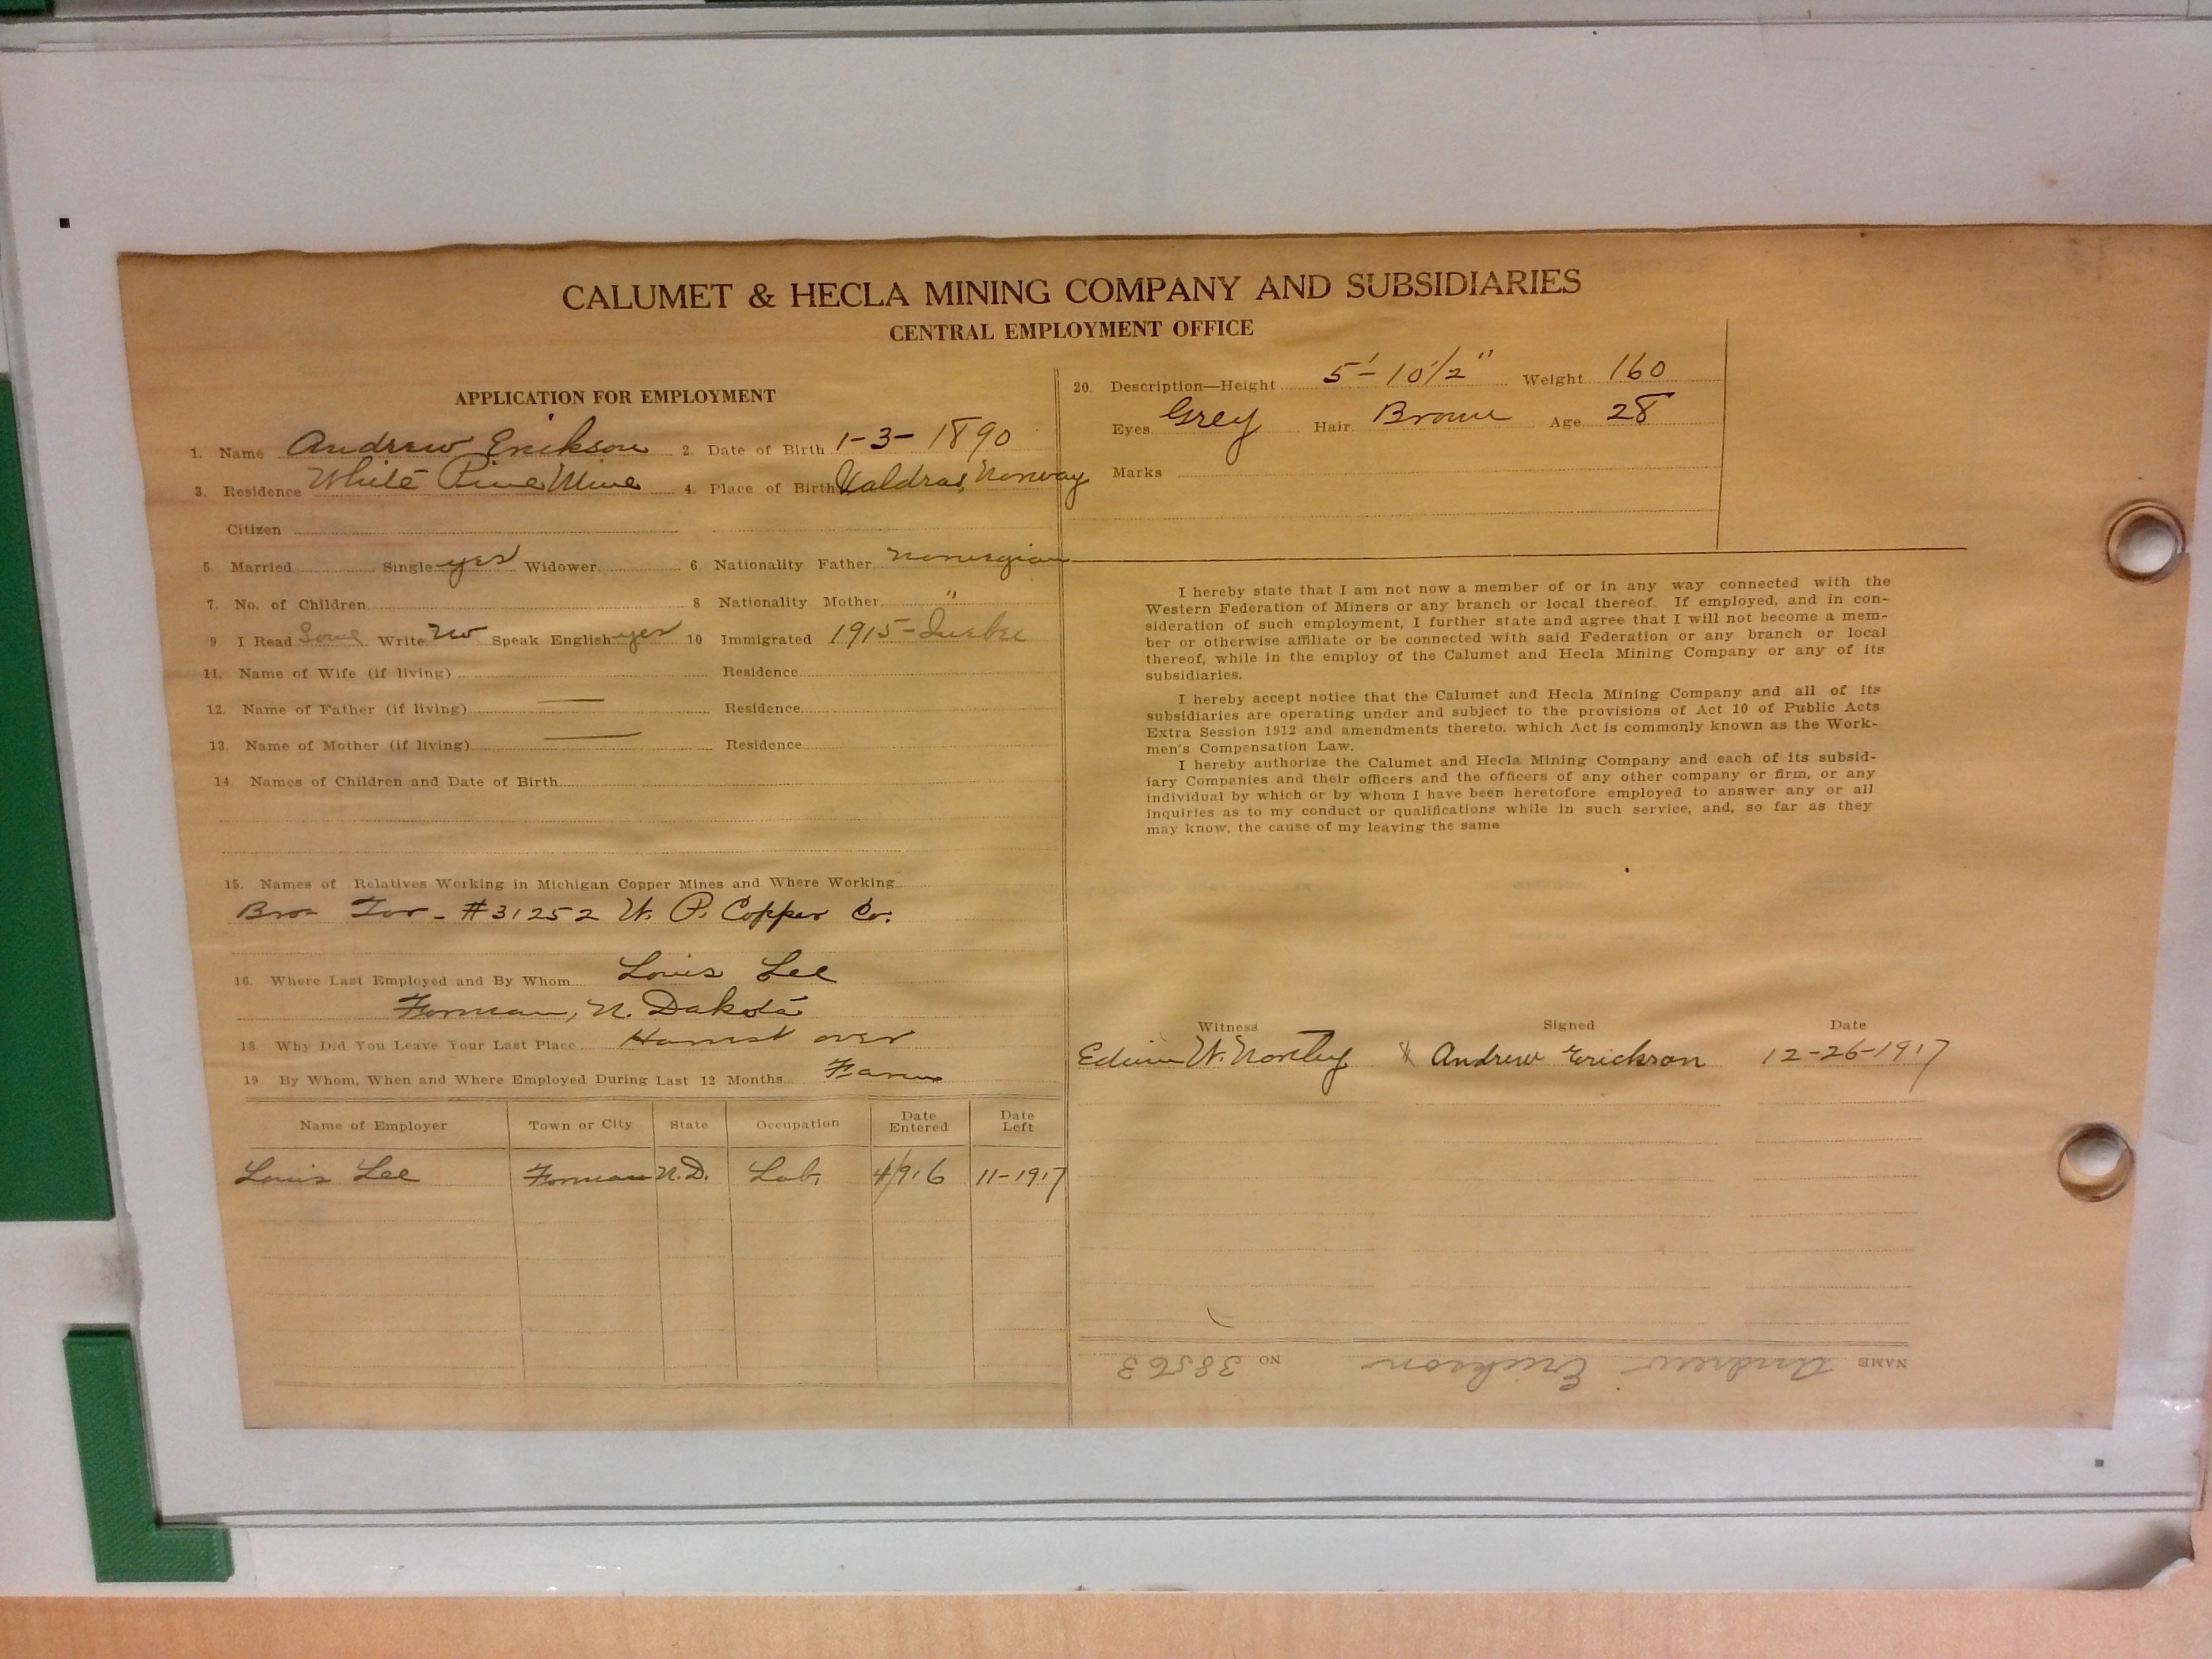 CALUMET & HECLA MINING COMPANY AND SUBSIDIARIES
CENTRAL EMPLOYMENT OFFICE
APPLICATION FOR EMPLOYMENT
1. Name Andrew Erikson 2. Date of Birth 1-3-1890
3. Residence White Pine Mine 4. Place of Birth Valdras, Norway
Citizen
5. Married Single yes Widower 6. Nationality Father Norwegian
7. No. of Children 8 Nationality Mother "
9 I Read Some Write No Speak English yes 10 Immigrated 1915-Quebec
11. Name of Wife (if living) Residence
12. Name of Father (if living) — Residence
13. Name of Mother (if living) — Residence
14. Names of Children and Date of Birth
15. Names of Relatives Working in Michigan Copper Mines and Where Working
Bro- Tor - #31252 W. P. Copper Co.
16. Where Last Employed and By Whom Louis Lee
Forman, N. Dakota
18. Why Did You Leave Your Last Place Harvest over
19. By Whom, When and Where Employed During Last 12 Months Farm
Name of Employer Town or City State Occupation Date Entered Date Left
Louis Lee Forman N.D. Lab. 4/916 11-1917
20. Description—Height 5'-10 1/2" Weight 160
Eyes Grey Hair Brown Age 28
Marks
I hereby state that I am not now a member of or in any way connected with the
Western Federation of Miners or any branch or local thereof. If employed, and in con-
sideration of such employment, I further state and agree that I will not become a mem-
ber or otherwise affiliate or be connected with said Federation or any branch or local
thereof, while in the employ of the Calumet and Hecla Mining Company or any of its
subsidiaries.
I hereby accept notice that the Calumet and Hecla Mining Company and all of its
subsidiaries are operating under and subject to the provisions of Act 10 of Public Acts
Extra Session 1912 and amendments thereto, which Act is commonly known as the Work-
men's Compensation Law.
I hereby authorize the Calumet and Hecla Mining Company and each of its subsid-
iary Companies and their officers and the officers of any other company or firm, or any
individual by which or by whom I have been heretofore employed to answer any or all
inquiries as to my conduct or qualifications while in such service, and, so far as they
may know, the cause of my leaving the same
Witness Signed Date
Edwin W. Andrew Erickson 12-26-1917
NAME Andrew Erickson NO 38563